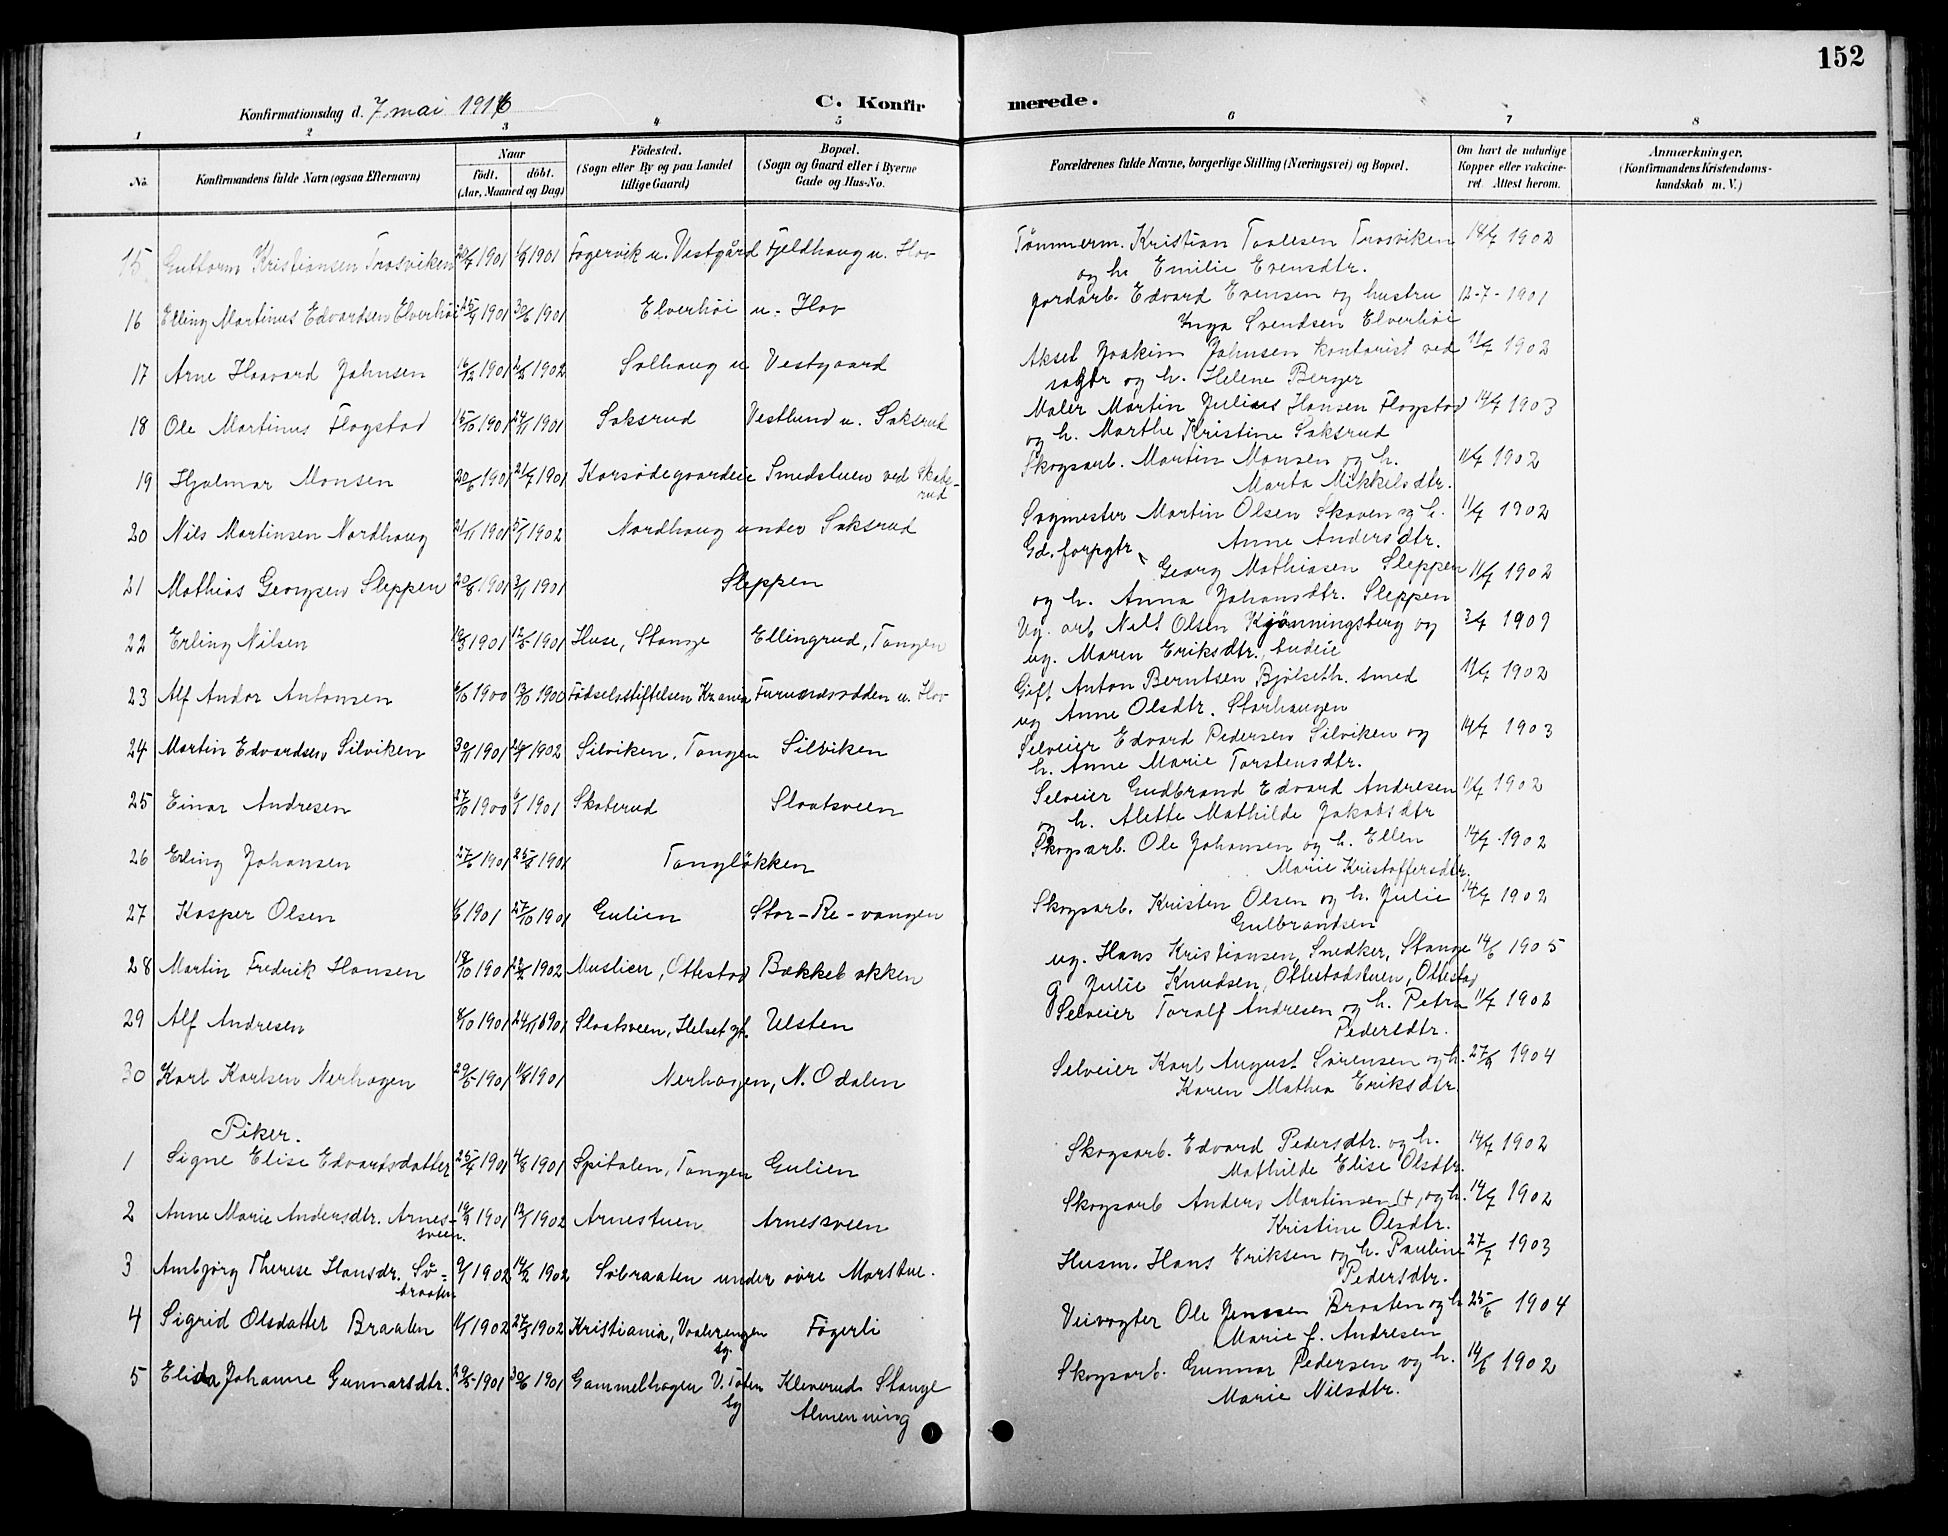 152
Konfirmationsdag d. 7 mai 1916
C. Konfirmerede.
1 2 3 4 5 6 7 8
No.
Konfirmandens fulde Navn (ogsaa Efternavn)
Naar födt. döbt. (Aar, Maaned og Dag)
Födested. (Sogn eller By og paa Landet tillige Gaard)
Bopæl. (Sogn og Gaard eller i Byerne Gade og Hus-No.
Forældrenes fulde Navne, borgerlige Stilling (Næringsvei) og Bopæl.
Om havt de naturlige Kopper eller vakcineret. Attest herom.
Anmærkninger. (Konfirmandens Kristendomskundskab m. V.)
15 Guttorm Kristiansen Trosviken 1901 1901 Fagervik u. Vestgård Fjeldhaug u. Hov Tömmerm. Kristian Taalesen Trosviken 18/7 1902
og h. Emilie Evensdtr.
16 Elling Martinus Edvardsen Elverhöi 25/4 1901 30/6 1901 Elverhöi u. Hov gardarb. Edvard Evensen og hustru 12-7-1901
Inga Svendsen Elverhöi
17 Arne Haavard Johnsen 16/12 1901 1902 Solhaug u Vestgaard Aksel Joakim Johnsen kontorist ved 11/7 1902
og h. Helene Berger
18 Ole Martinus Flagstad 15/10 1901 24/11 1901 Saksrud Vestlund u. Saksrud Maler Martin Julius Hansen Flagstad 14/7 1903
og h. Marthe Kristine Saksrud
19 Hjalmar Monsen 20/6 1901 21/7 1901 Korsödegaardeie Smedstuen ved Skaterud Skogsarb. Martin Monsen og h. 11/7 1902
Marta Mikkelsdtr.
20 Nils Martinsen Nordhaug 21/11 1901 5/1 1902 Nordhaug under Saksrud Sagmester Martin Olsen Skaven og h. 11/7 1902
Anne Andersdtr.
21 Mathias Georgsen Sleppen 20/8 1901 3/11 1901 Sleppen Gd. forpgtr. Georg Mathiasen Sleppen 11/7 1902
og h. Anna Johansdtr. Sleppen
22 Erling Nilsen 1901 1901 Huse, Stange Ellingrud, Tangen Ug. arb Nils Olsen Kjönningsberg og 3/7 1909
ug. Maren Eriksdtr.
23 Alf Andor Antonsen 1900 1900 Födselsstiftelsen Kr.ania Furunesodden u. Hov Gift Anton Berntsen Bjölseth. smed 11/7 1902
ug Anne Olsdtr. Storhaugen
24 Martin Edvardsen Silviken 30/11 1901 1902 Silviken, Tangen Silviken Selveier Edvard Pedersen Silviken og 14/7 1903
h. Anne Marie Torstensdtr.
25 Einar Andresen 27/10 1900 6/1 1901 Skaterud Slaatsveen Selveier Gudbrand Edvard Andresen 11/7 1902
og h. Alette Mathilde Jakobsdtr
26 Erling Johansen 27/6 1901 25/8 1901 Tangløkken Skogsarb. Ole Johansen og h. Ellen 14/7 1902
Marie Kristoffersdtr.
27 Kasper Olsen 1901 27/10 1901 Gulien Stor-Re-vangen Skogsarb. Kristen Olsen og h. Julie 14/7 1902
Gulbrandsen
28 Martin Frederik Hansen 18/10 1901 1902 Muslien, Ottestad Bækkeløkken ug. Hans Kristiansen, Snedker, Stange 14/6 1905
g Julie Knudsen, Ottestadstuen, Ottestad
29 Alf Andresen 8/10 1901 24/11 1901 Slaatsveen, Helset gt. Ulsten Selveier Toralf Andresen og h. Petra 11/7 1902
Pedersdtr.
30 Karl Karlsen Nerhagen 29/5 1901 1901 Nerhagen, N. Odalen Selveier Karl August Sørensen og h. 1904
Karen Mathea Eriksdtr.
Piker.
1 Signe Elise Edvardsdatter 25/4 1901 4/8 1901 Spitalen, Tangen Gulien Skogsarb. Edvard Pedersdtr. og h. 14/7 1902
Mathilde Elise Olsdtr.
2 Anne Marie Andersdtr. Arnessveen. 1901 1902 Arnestuen Arnessveen Skogsarb Anders Martinsen (+) og h. 14/7 1902
Kristine Olsdtr.
3 Ambjörg Therese Hansdr. Söbraaten 9/1 1902 16/2 1902 Söbraaten under övre Marstue. Husm. Hans Eriksen og h. Pauline 27/7 1903
Pedersdtr.
4 Sigrid Olsdatter Braaten 1902 1902 Kristiania, Vaalerengen sg. Fagerli Veivogter Ole Jenssen Braaten og h 25/6 1904
Marie f. Andresen
5 Elida Johanne Gunnarsdtr. 29/5 1901 30/6 1901 Gammelhagen V. Toten sg Kleverud Stange Almenning Skogsarb. Gunnar Pedersen og h. 14/6 1902
Marie Nilsdtr.